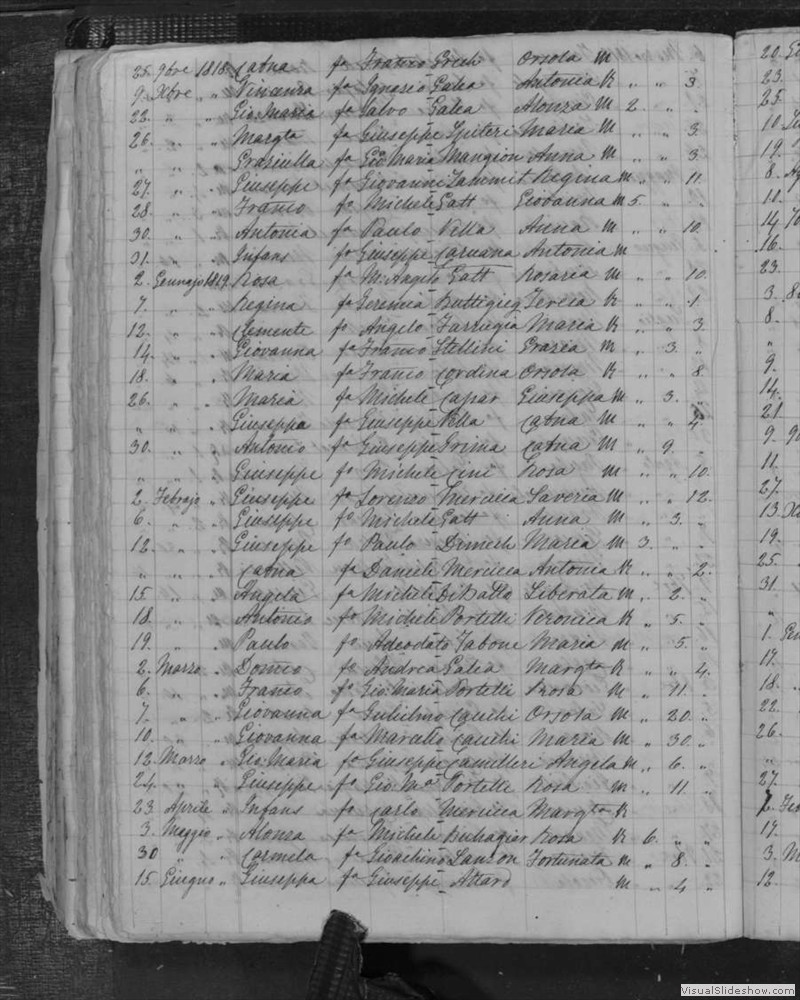 25. 9bre 1818 Catna fa Franco Grech Orsola M
9. Xbre „ „ Vincenza fa Ignazio Galea Antonia K „ „ 3
22. „ „ Gio. Maria fo Salvo Galea Alonza M 2. „ .
26. „ . Margta fa Giuseppe Spiteri Maria M „ „ 3
„ „ . Graziulla fa Gio Maria Mangion Anna M „ „ 3
27. „ . Giuseppe fo Giovanni Zammit Regina M „ „ 11
28. „ . Franco fo Michele Gatt Giovanna M 5 „ „
30. „ . Antonia fa Paulo Vella Anna M „ „ 10
31. „ . Infans fo Giuseppe Caruana Antonia M
2. Gennajo 1819. Rosa fa M. Angelo Gatt Rosaria M „ „ 10
7. „ „ Regina fa Geremia Buttigieg Teresa K „ „ 1
12. „ „ Clemente fo Angelo Farrugia Maria K „ „ 3
14. „ „ Giovanna fa Franco Stellini Grazia M „ 3. „
18. „ . Maria fa Franco Cordina Orsola K „ „ 8
26. „ . Maria fa Michele Capar Giuseppa M „ 3. „
„ „ . Giuseppa fa Giuseppe Vella Catna M „ „ 4
30. „ . Antonio fo Giuseppe Grima Catna M „ 9. „
„ „ „ Giuseppe fo Michele Cini Rosa M „ „ 10
2. Febrajo „ Giuseppe fo Lorenzo Mercieca Saveria M „ „ 12
6. „ . Giuseppe fo Michele Gatt Anna M „ 3. „
12. „ „ Giuseppe fo Paulo Dimech Maria M 3. „ „
„ „ . Catna fa Daniele Mercieca Antonia K „ „ 2
15 „ . Angela fa Michele Debatto Liberata M „ 2. „
18. „ . Antonio fo Michele Portelli Veronica K „ 5. „
19. „ . Paulo fo Adeodato Tabone Maria M „ 5. „
2. Marzo . Domco fo Andrea Galea Margta K „ „ 4
6. „ . Franco fo Gio. Maria Portelli Rosa M „ 11. „
7. „ „ Giovanna fa Gulielmo Cauchi Orsola M „ 20. „
10. „ . Giovanna fa Marcello Cauchi Maria M „ 30. „
12. Marzo „ Gio. Maria fo Giuseppe Camilleri Angela M „ 6. „
24. „ „ Giuseppe fo Gio. Ma Portelli Rosa M „ 11 „
23 Aprile „ Infans fo Carlo Mercieca Margta K
3. Maggio . Alonza fa Michele Buhagiar Rosa K 6. „ „
30 „ . Carmela fa Gioachino Sanson Fortunata M „ 8. .
15. Giugno „ Giuseppa fa Giuseppe Attard M „ 4 „
20. G
23.
25.
10. Iu
19.
8. Ag
11.
14.
16.
23.
3. 8
8.
„
9.
14.
21
9. 9
11.
27.
13. X
19.
25.
31.
„
1. Gen
17.
18. „
22.
26.
„
27.
2. Feb
17.
3. M
12.
VisualSlideshow.com